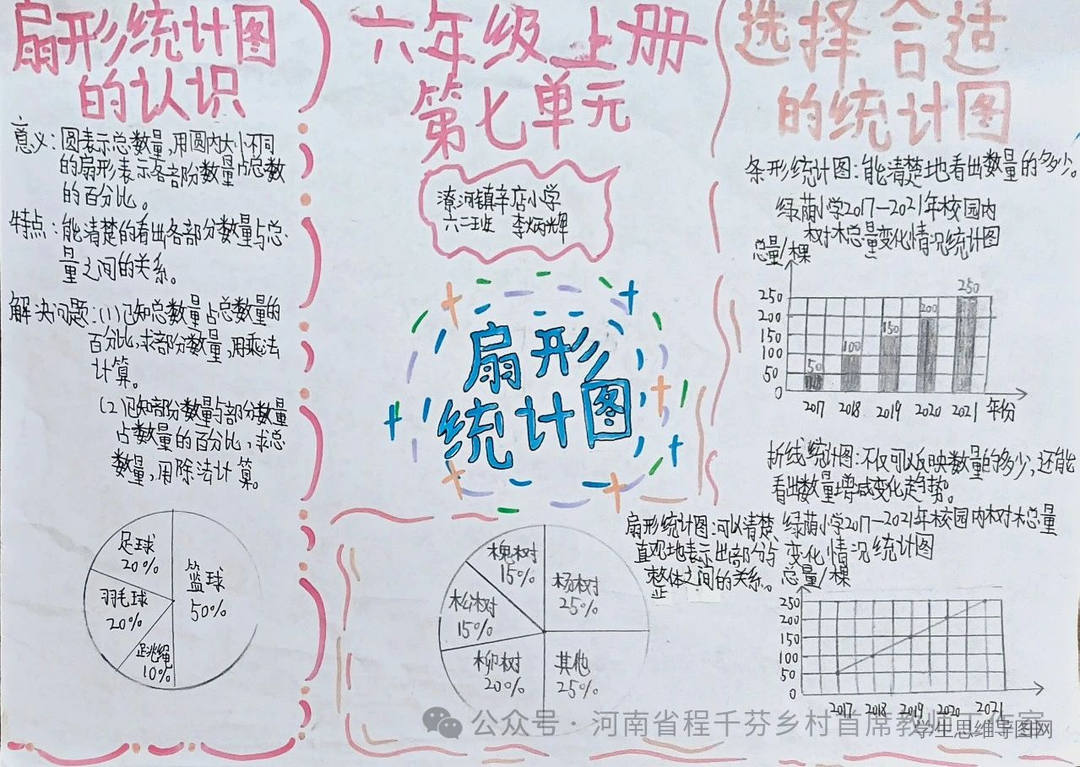 扇形统计图
的认识
意义:圆表示总数量,用圆内大小不同
的扇形表示各部份数量占总数
的百分比。
特点:能清楚的看出各部分数量与总
量之间的关系。
解决问题:(1)已知总数量占总数量的
百分比,求部分数量,用乘法
计算。
(2)已知部分数量与部分数量
占数量的百分比,求总
数量,用除法计算。
足球
20%
篮球
50%
羽毛球
20%
跳绳
10%
六年级上册
第七单元
潦河镇辛店小学
六二班 李炳光辉
扇形
统计图
槐树
15%
杨树
25%
松树
15%
柳树
20%
其他
25%
选择合适
的统计图
条形统计图:能清楚地看出数量的多少。
绿荫小学2017—2021年校园内
树木总量变化情况统计图
总量/棵
250
200
150
100
50
0
50
100
150
200
250
2017 2018 2019 2020 2021 年份
折线统计图:不仅可以反映数量的多少,还能
看出数量增减变化趋势。
扇形统计图:可以清楚
直观地表示出部分与
整体之间的关系。
绿荫小学2017—2021年校园内树木总量
变化情况统计图
总量/棵
250
200
150
100
50
0
2017 2018 2019 2020 2021
公众号·河南省程千芬乡村首席教师工作室
学生思维导图网